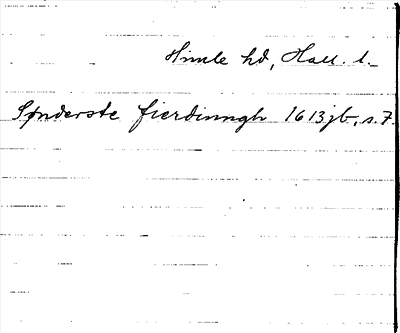 Himle hd, Hall. l.
Sønderste fierdinngh 1613 jb, s. 7.